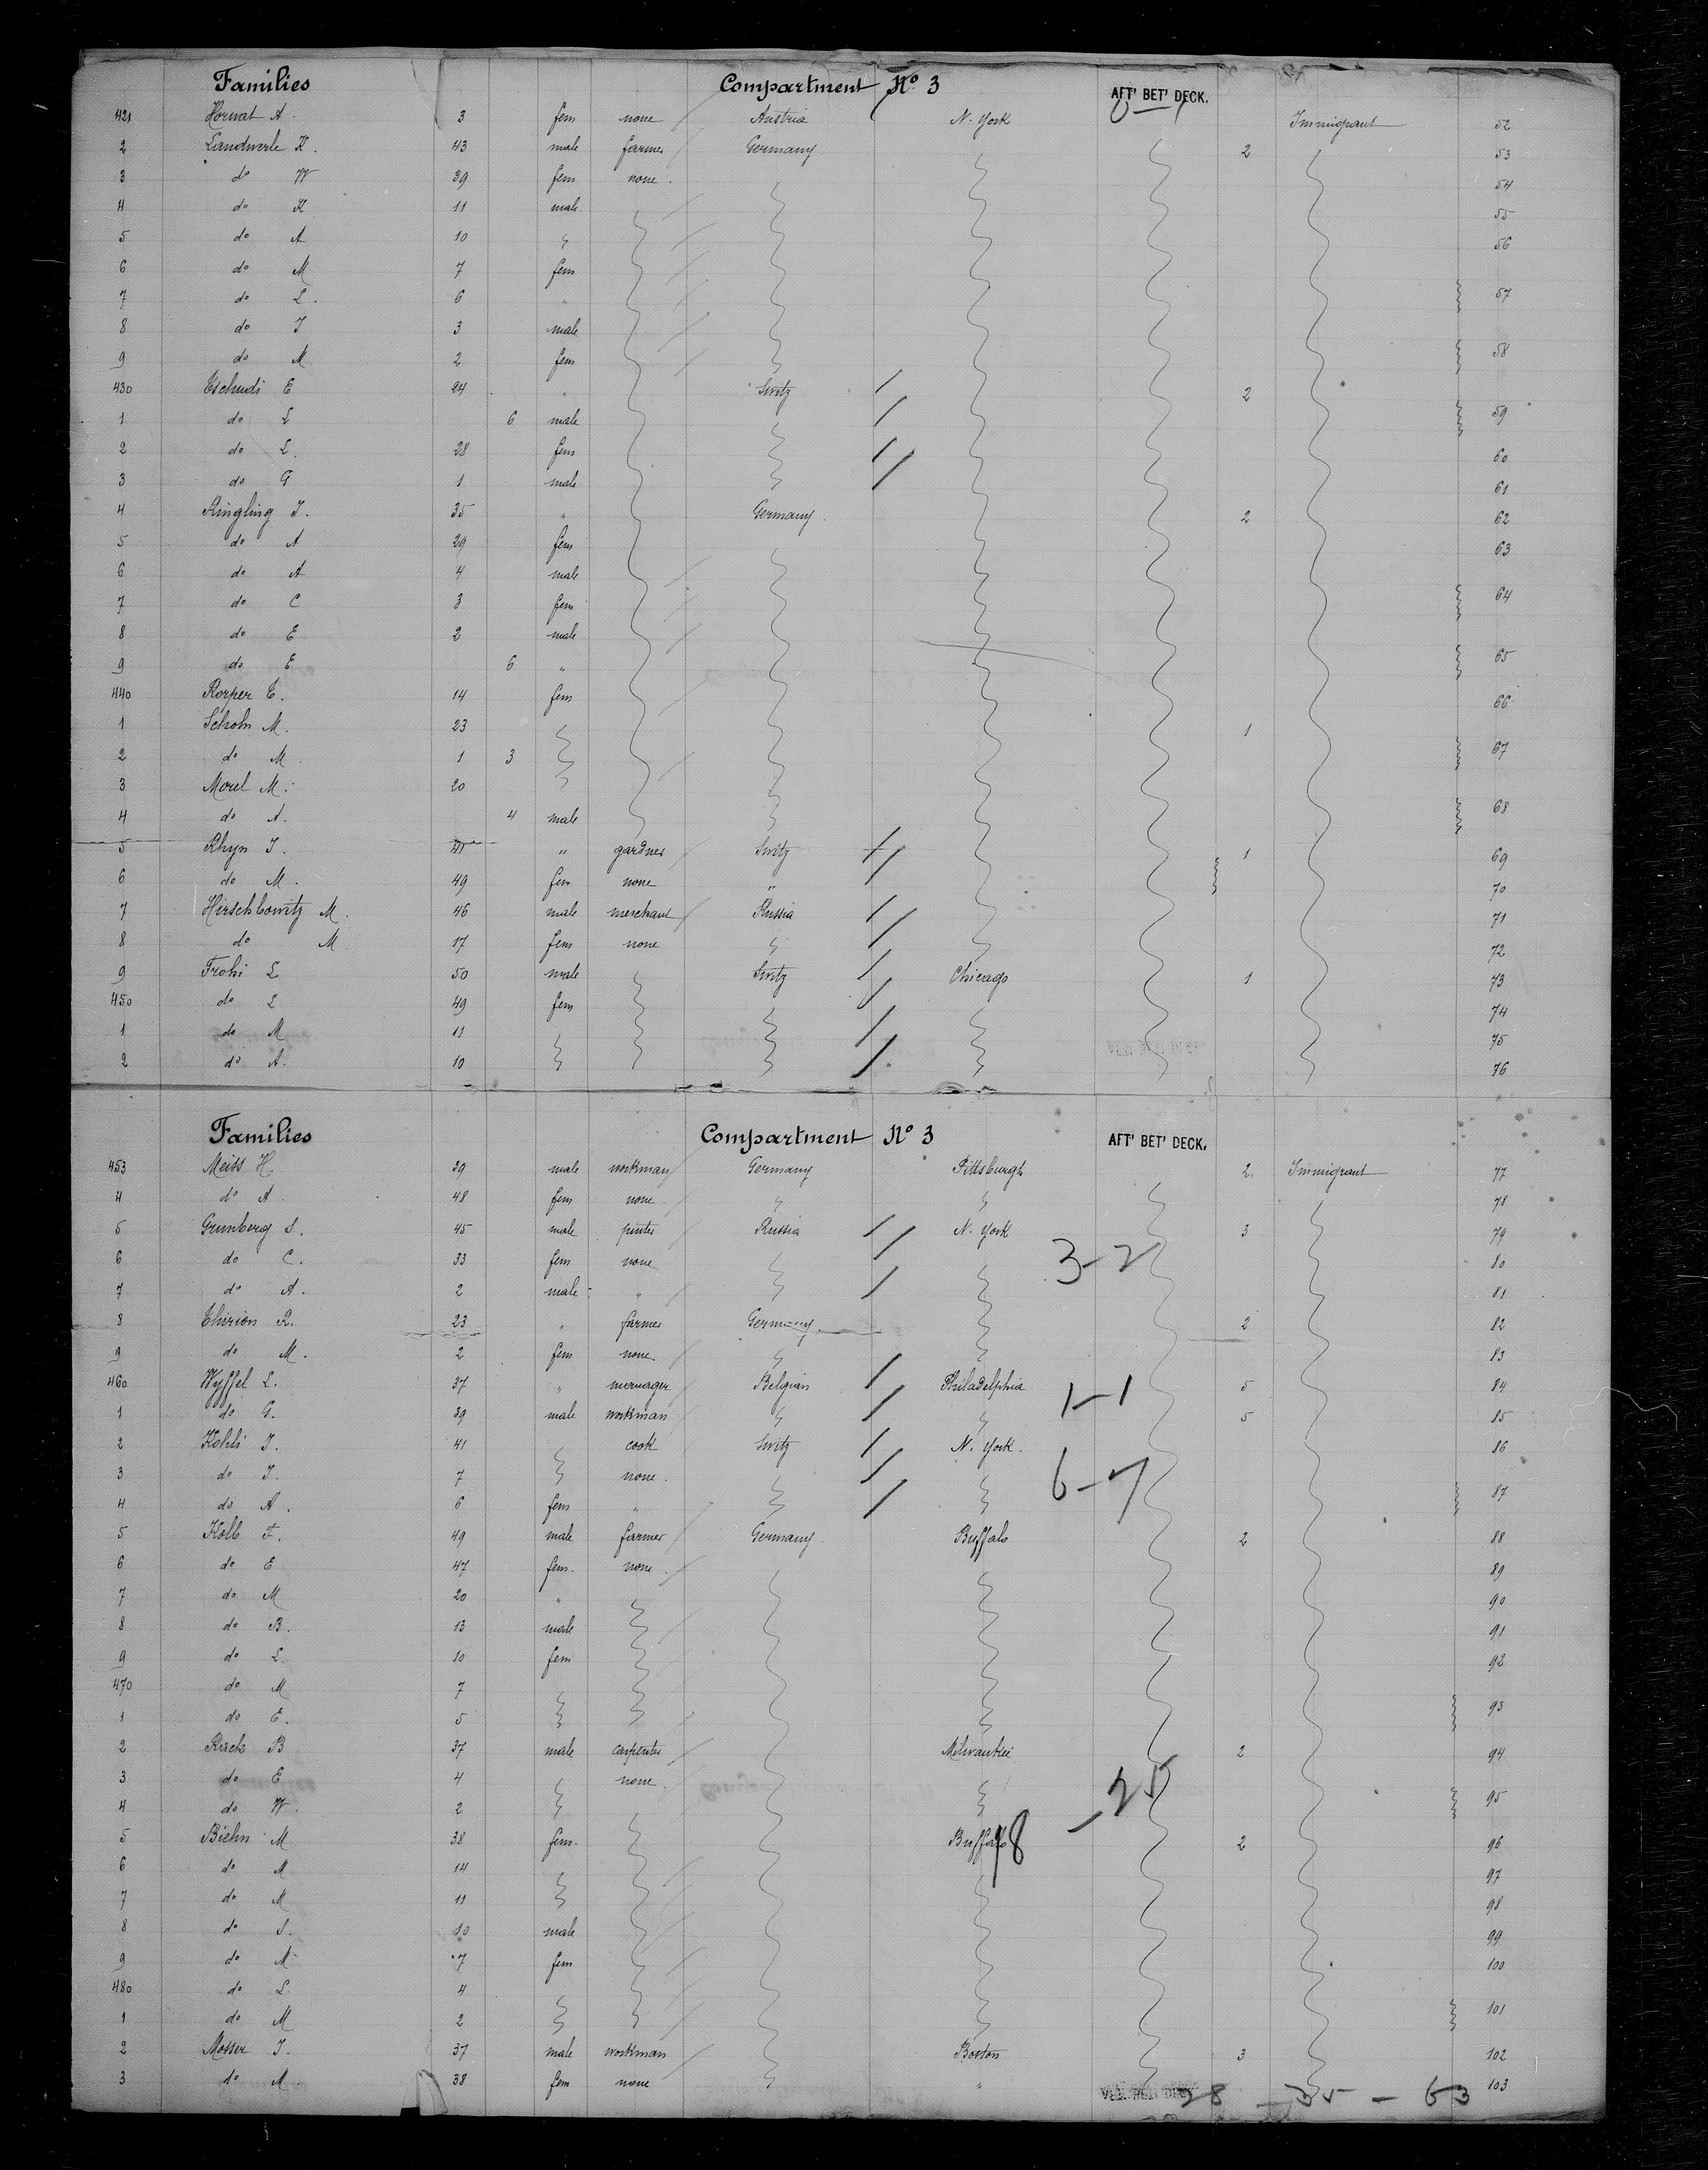 Families Compartment No 3 AFT' BET' DECK.
421 Hornat A. 3 fem none Austria N. York Immigrant 52
2 Landwerle K. 43 male farmer Germany 2 53
3 do W 39 fem none. 54
4 do K 11 male 55
5 do A 10 " 56
6 do M 7 fem
7 do L. 6 " 57
8 do J 3 male
9 do M 2 fem 58
430 Tschudi E 24 " Switz 2
1 do L 6 male 59
2 do L. 28 fem 60
3 do G 1 male 61
4 Ringling J. 35 " Germany 2 62
5 do A 29 fem 63
6 do A 4 male
7 do C 3 fem 64
8 do E 2 male
9 do E 6 " 65
440 Rorper E. 14 fem 66
1 Scholn M. 23 1
2 do M. 1 3 67
3 Morel M. 20
4 do A. 4 male 68
5 Rhyn J. 41 " gardner Switz 1 69
6 do M. 49 fem none " 70
7 Hirschbowitz M. 46 male merchant Russia 71
8 do M 17 fem none 72
9 Frohi L 50 male Switz Chicago 1 73
450 do L 49 fem 74
1 do M 11 75
2 do A. 10 76
Families Compartment No 3 AFT' BET' DECK.
453 Meiss H. 39 male workman Germany Pittsburgh 2 Immigrant 77
4 do A. 48 fem none 78
5 Grunberg S. 45 male Russia N. York 3 79
6 do C. 33 fem none 3-2 80
7 do A. 2 male " 81
8 Thirion R. 23 " farmer Germany 2 82
9 do M. 2 fem none 83
460 Wyffel L. 37 " menager Belgian Philadelphia 1-1 5 84
1 do G. 39 male workman 5 85
2 Kohli J. 41 cook Switz N. York. 86
3 do J. 7 none. 6-7
4 do A. 6 fem " 87
5 Kolb F. 49 male farmer Germany Buffalo 2 88
6 do E 47 fem. none 89
7 do M 20 " 90
8 do B. 13 male 91
9 do L. 10 fem 92
470 do M 7
1 do E. 5 93
2 Rack B 37 male carpenter Milwaukee 2 94
3 do E 4 none.
4 do W. 2 95
5 Biehn M 38 fem. Buffalo 18 - 25 2 96
6 do M 14 97
7 do M 11 98
8 do S. 10 male 99
9 do A 7 fem 100
480 do L 4
1 do M 2 101
2 Mosser J. 37 male workman Boston 3 102
3 do M. 38 fem none " 103
28 - 35 - 63